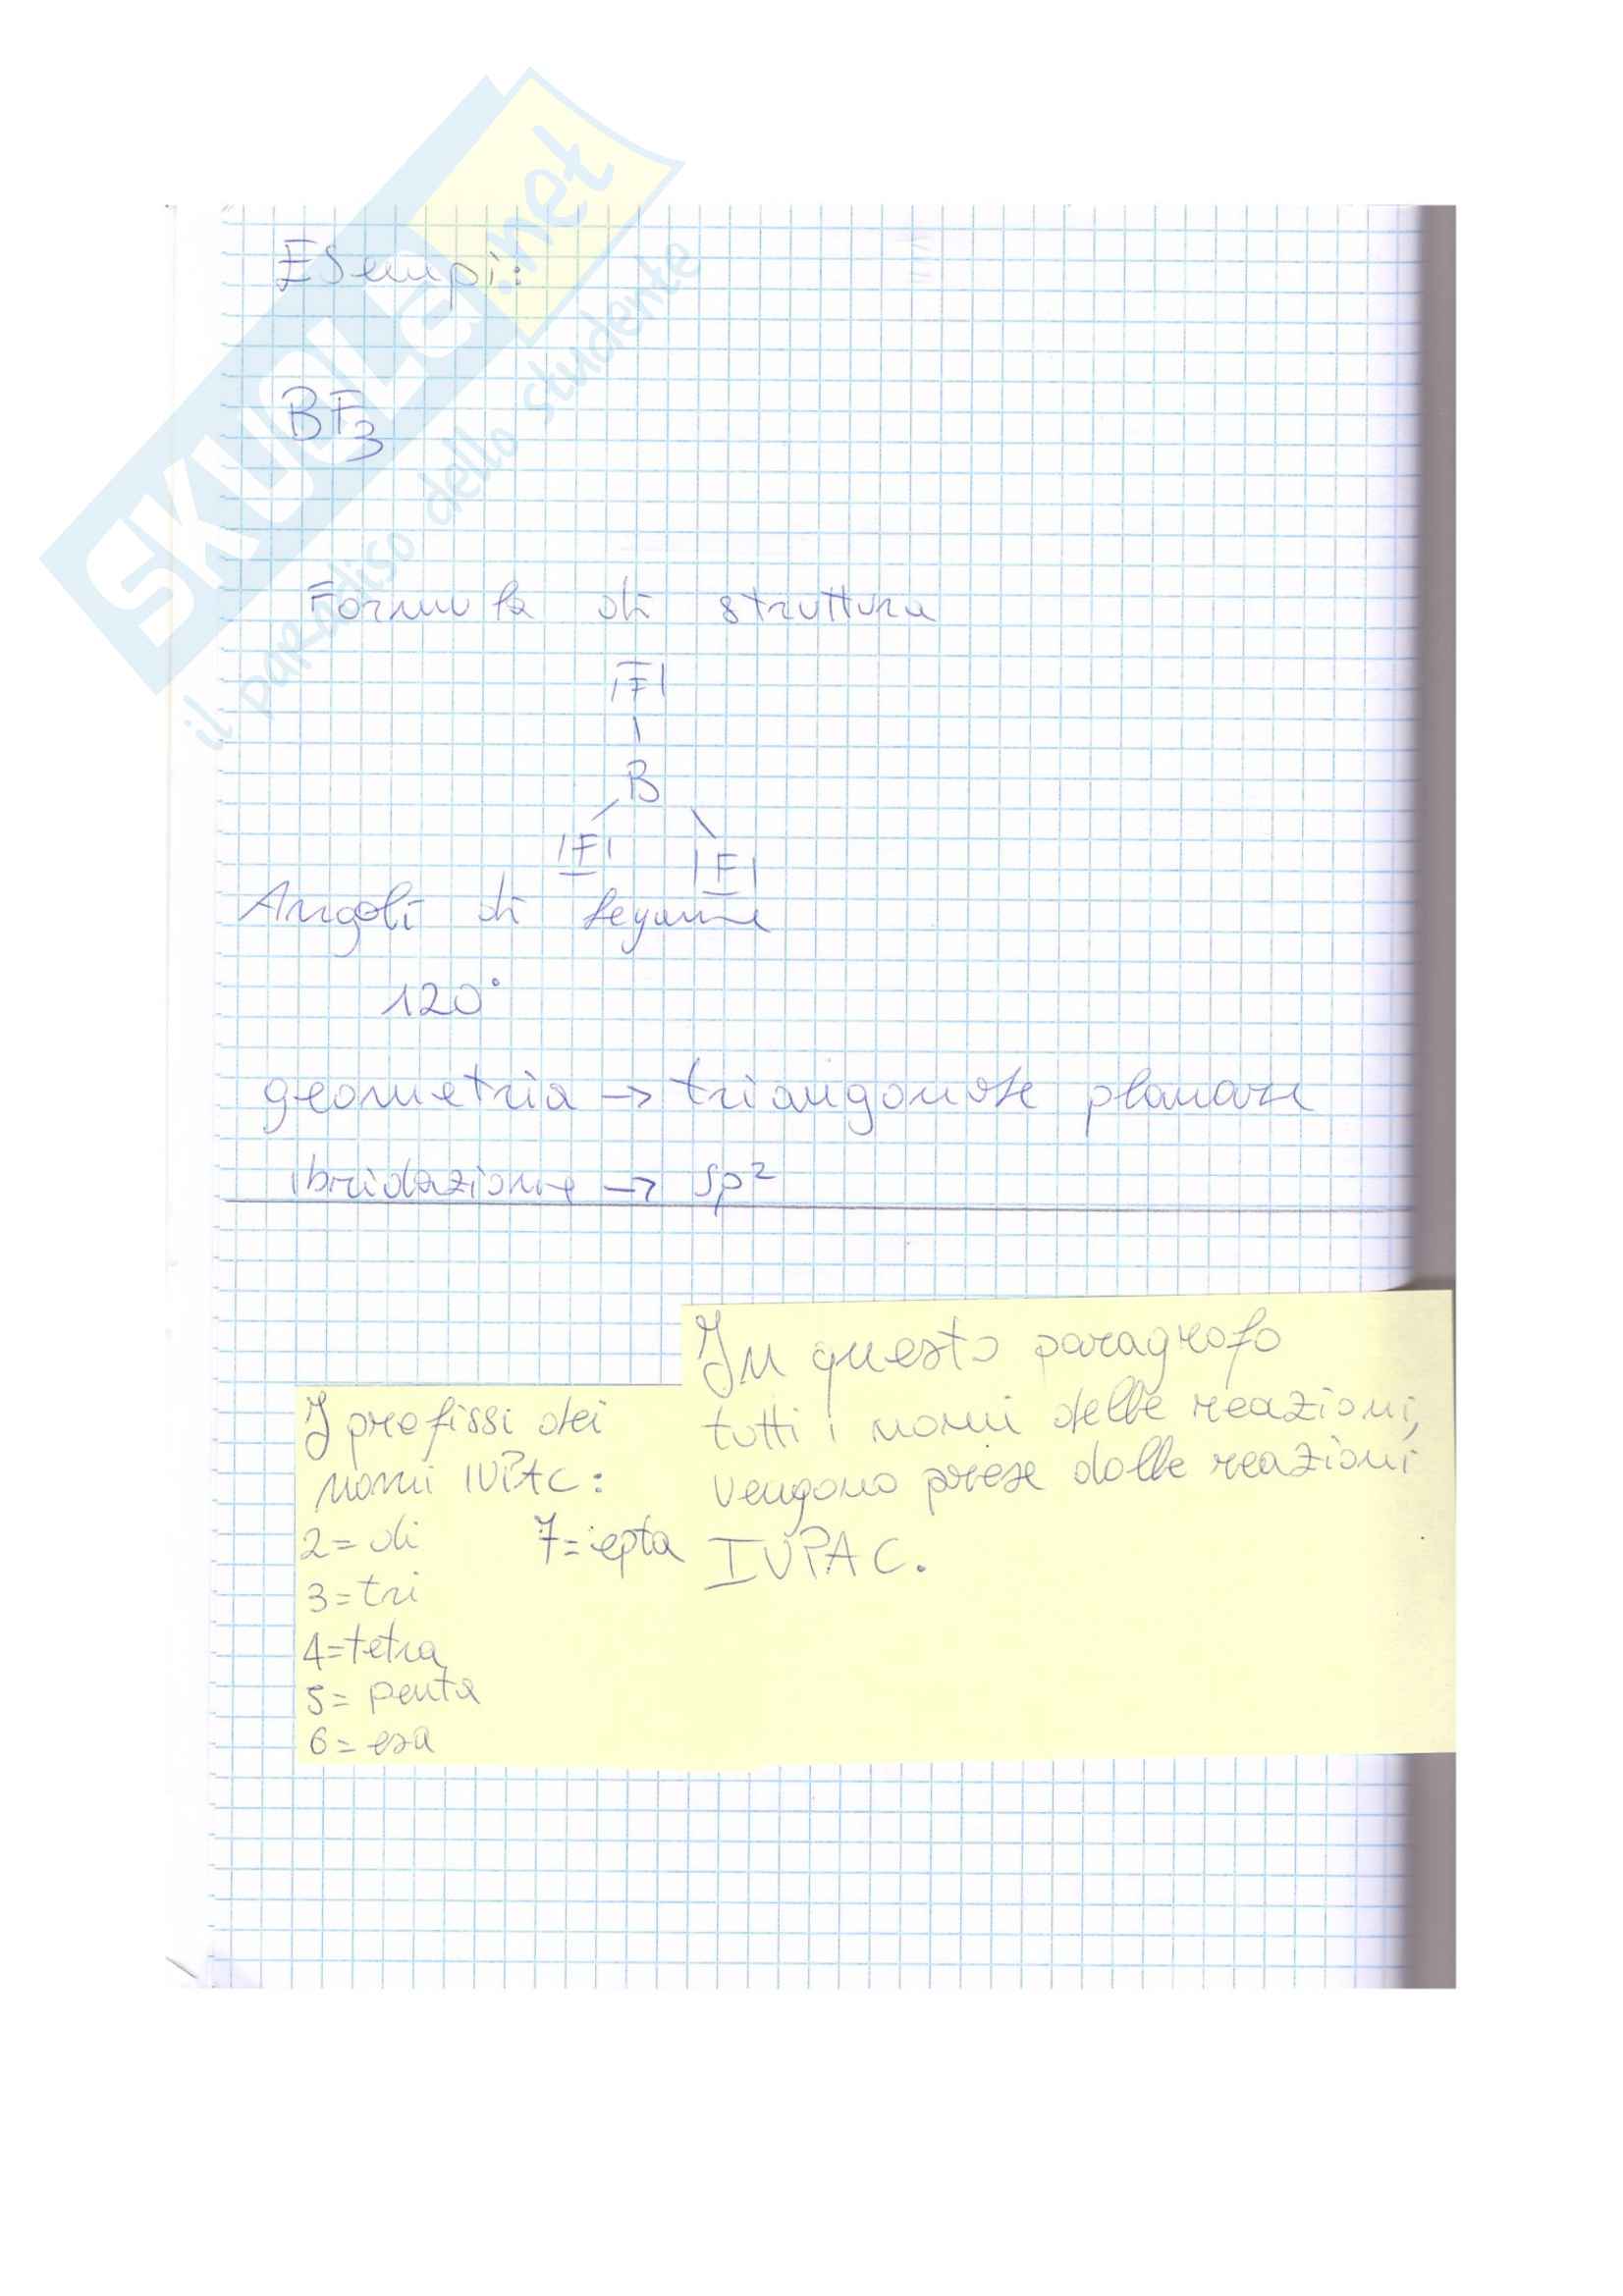 SKUOLA.net
il paradiso dello studente
Esempi:
BF3
Formula di struttura
|F|
|
B
/ \
|F| |F|
Angoli di legame
120°
geometria → triangonale planare
ibridazione → sp²
In questo paragrafo
tutti i nomi delle reazioni,
vengono prese dalle reazioni
IUPAC.
I prefissi dei
nomi IUPAC:
2= di 7= epta
3= tri
4= tetra
5= penta
6= esa